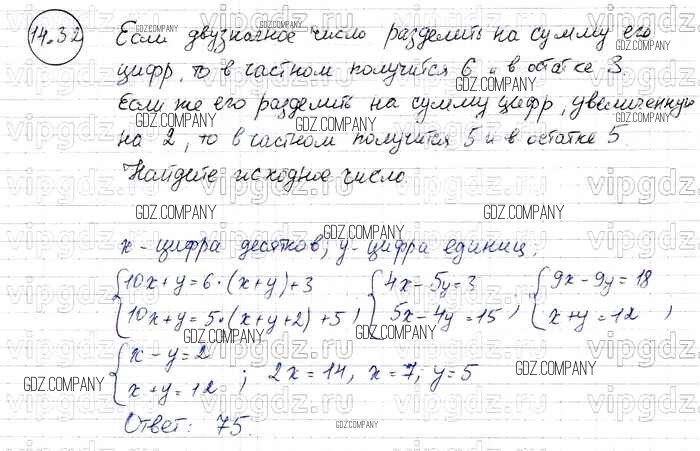 14.32 Если двузначное число разделить на сумму его
цифр, то в частном получится 6 и в остатке 3.
Если же его разделить на сумму цифр, увеличенную
на 2, то в частном получится 5 и в остатке 5.
Найдите исходное число.
x - цифра десятков; y - цифра единиц;
{10x+y=6·(x+y)+3 {4x-5y=3 {9x-9y=18
10x+y=5·(x+y+2)+5; 5x-4y=15; x+y=12;
{x-y=2
x+y=12; 2x=14, x=7; y=5
Ответ: 75.
GDZ.COMPANY
vipgdz